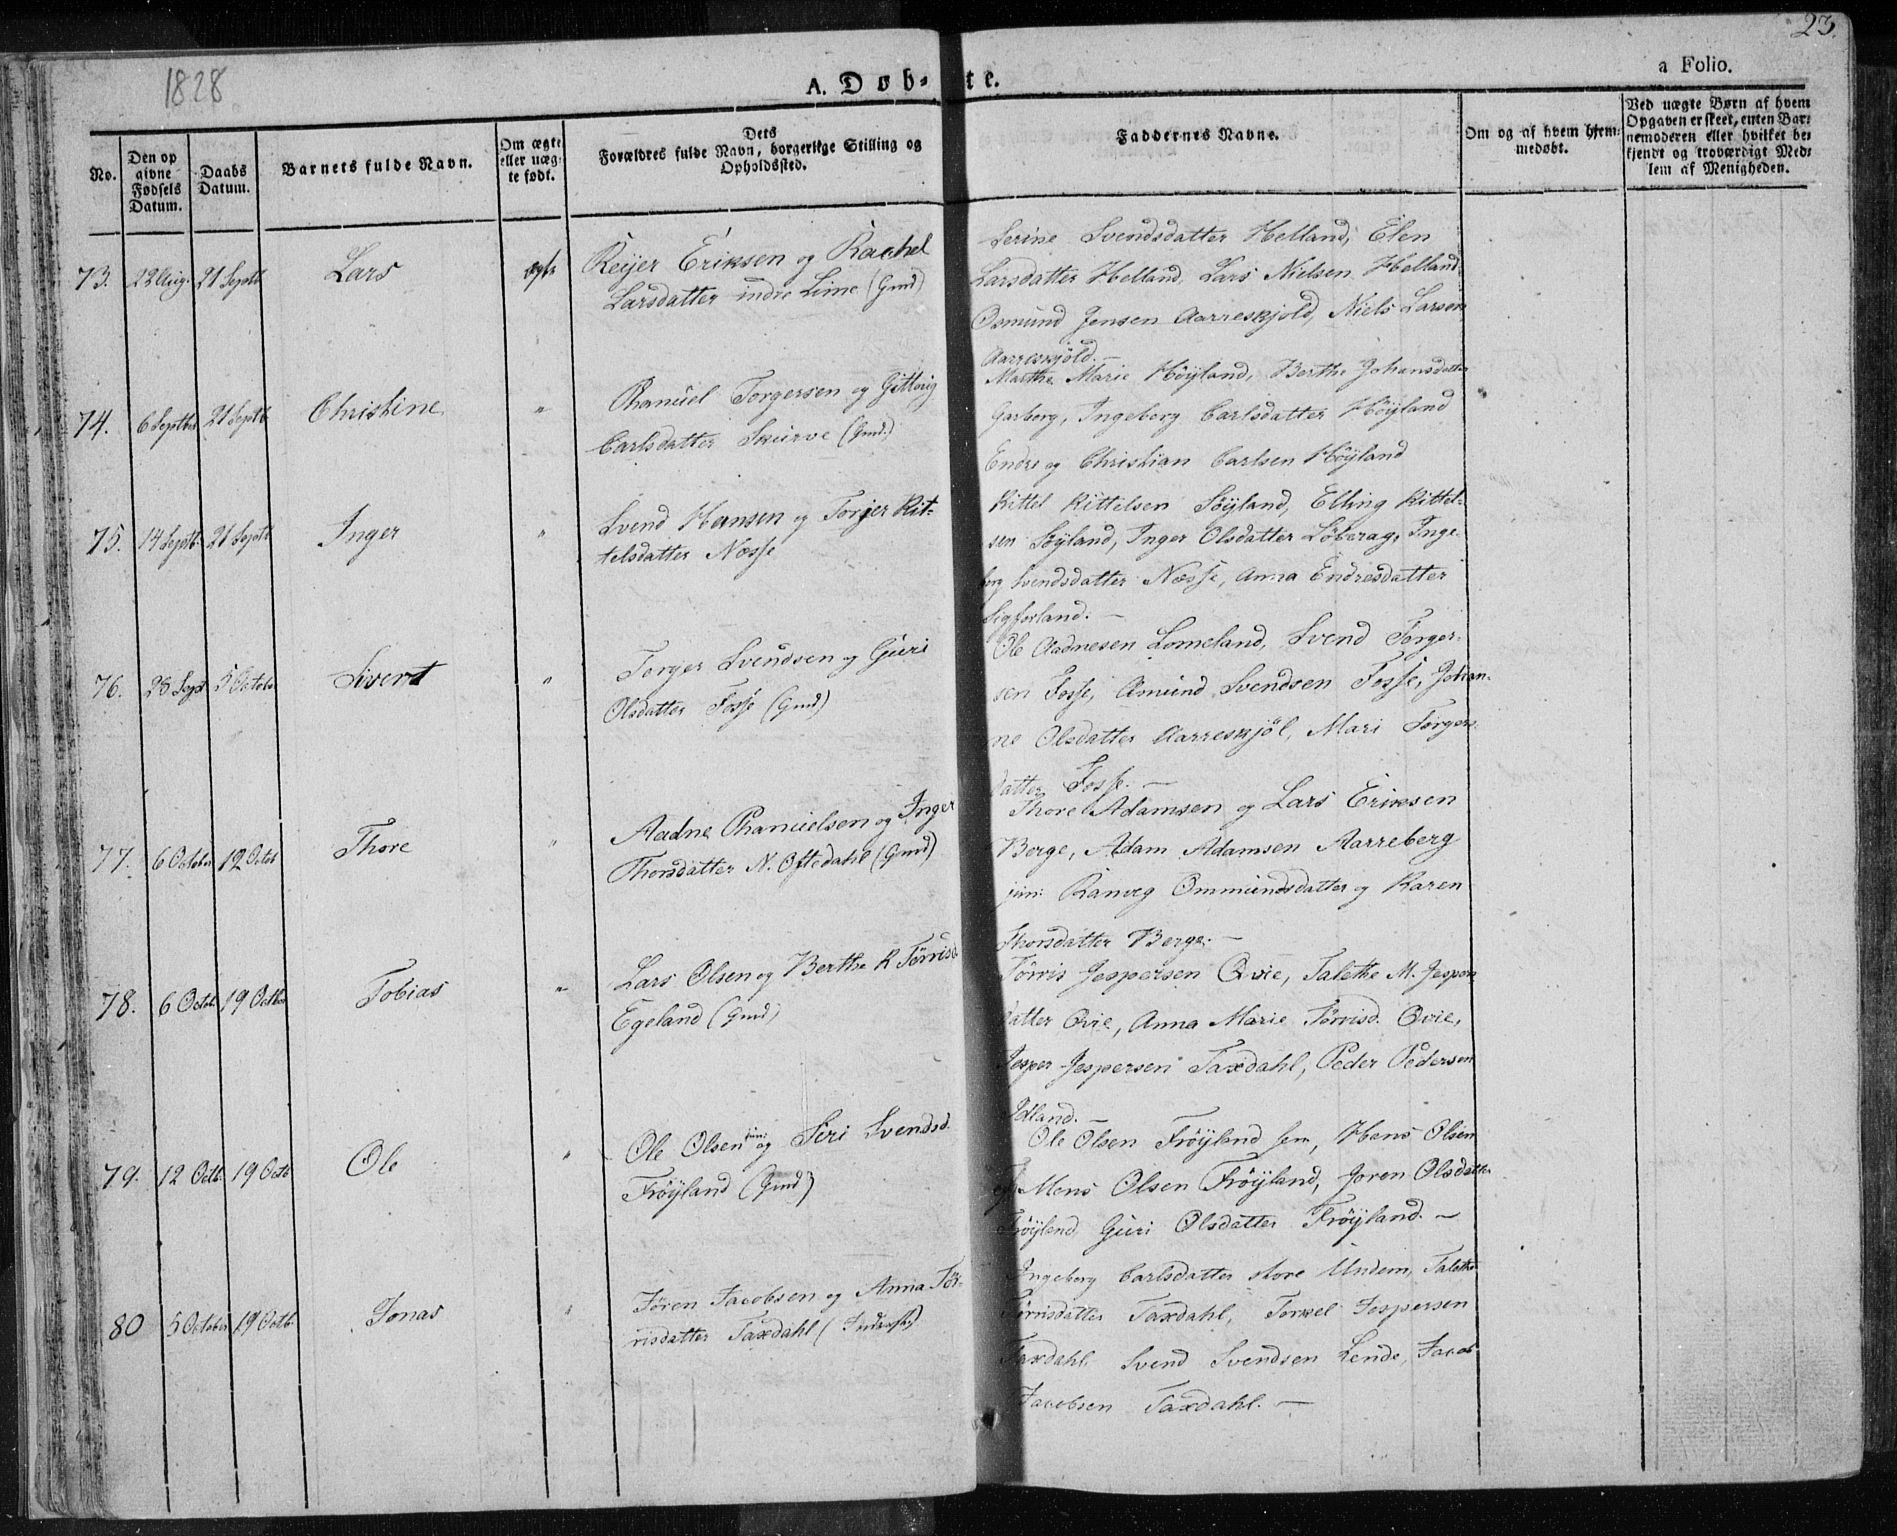 1828
23.
A. Døb-
te.
a Folio.
No.
Den op
givne
Fødsels
Datum.
Daabs
Datum.
Barnets fulde Navn.
Om ægte
eller uæg-
te født.
Dets
Forældres fulde Navn, borgerlige Stilling og
Opholdssted.
Faddernes Navne.
Om og af hvem hjem-
medøbt.
Ved uægte Børn af hvem
Opgaven er skeet, enten Bar-
nemoderen eller hvilket be-
kjendt og troværdigt Med-
lem af Menigheden.
73. 22 Aug. 21 Septb Lars ægte Reijer Eriksen og Rachel
Larsdatter indre Lime (Gmd)
Serine Svendsdatter Helland, Elen
Larsdatter Helland, Lars Nielsen Helland
Osmund Jensen Aarreskjold, Niels Larsen
Aarreskjöld. —
74. 6 Septbr 21 Septb Christine " Phanuel Torgersen og Gittorig
Carlsdatter Skurve (Gmd.)
Marthe Marie Höyland, Berthe Johansdatter
Garborg, Ingeborg Carlsdatter Höyland
Endre og Christian Carlsen Höyland
75. 14 Septb. 21 Septb Inger " Svend Hansen og Torjer Kit-
telsdatter Næsse
Kittel Kittelsen Söyland, Elling Kittel-
sen Söyland, Inger Olsdatter Löberag, Inge-
borg Svendsdatter Næsse, Anna Endresdatter
Sigforland. —
76. 28 Sept 5 Octobr Sivert " Torger Svendsen og Guri
Olsdatter Fosse (Gmd)
Ole Aadnesen Lomeland, Svend Torger-
sen Fosse, Amund Svendsen Fosse, Johan-
ne Olsdatter Aarreskjöl, Mari Torgers-
datter Fosse. —
77. 6 October 12 Octob Thore " Aadne Phanuelsen og Inger
Thorsdatter N. Oftedahl (Gmd)
Thore Adamsen og Lars Eriksen
Berge, Adam Adamsen Aarreberg
jun: Ranveg Ommundsdatter og Karen
Thorsdatter Berge. —
78. 6 Octob. 19 October Tobias " Lars Olsen og Berthe K Törrisd
Egeland (Gmd)
Törris Jespersen Qvie, Talethe M. Jespers
datter Qvie, Anna Marie Törrisd. Qvie,
Jesper Jespersen Taxdahl, Peder Pedersen
Idland. —
79. 12 Octb. 19 Octb Ole " Ole Olsen jun: og Siri Svendsd.
Fröyland (Gmd)
Ole Olsen Fröyland sen, Hans Olsen
og Mons Olsen Fröyland, Joren Olsdatter
Fröyland, Guri Olsdatter Fröyland. —
80 5 October 19 Octb. Jonas " Jören Jacobsen og Anna Tör-
risdatter Taxdahl
Ingeborg Carlsdatter store Undem, Talethe
Törrisdatter Taxdahl, Torkel Jespersen
Taxdahl. Svend Svendsen Lende, Jacob
Jacobsen Taxdahl. —